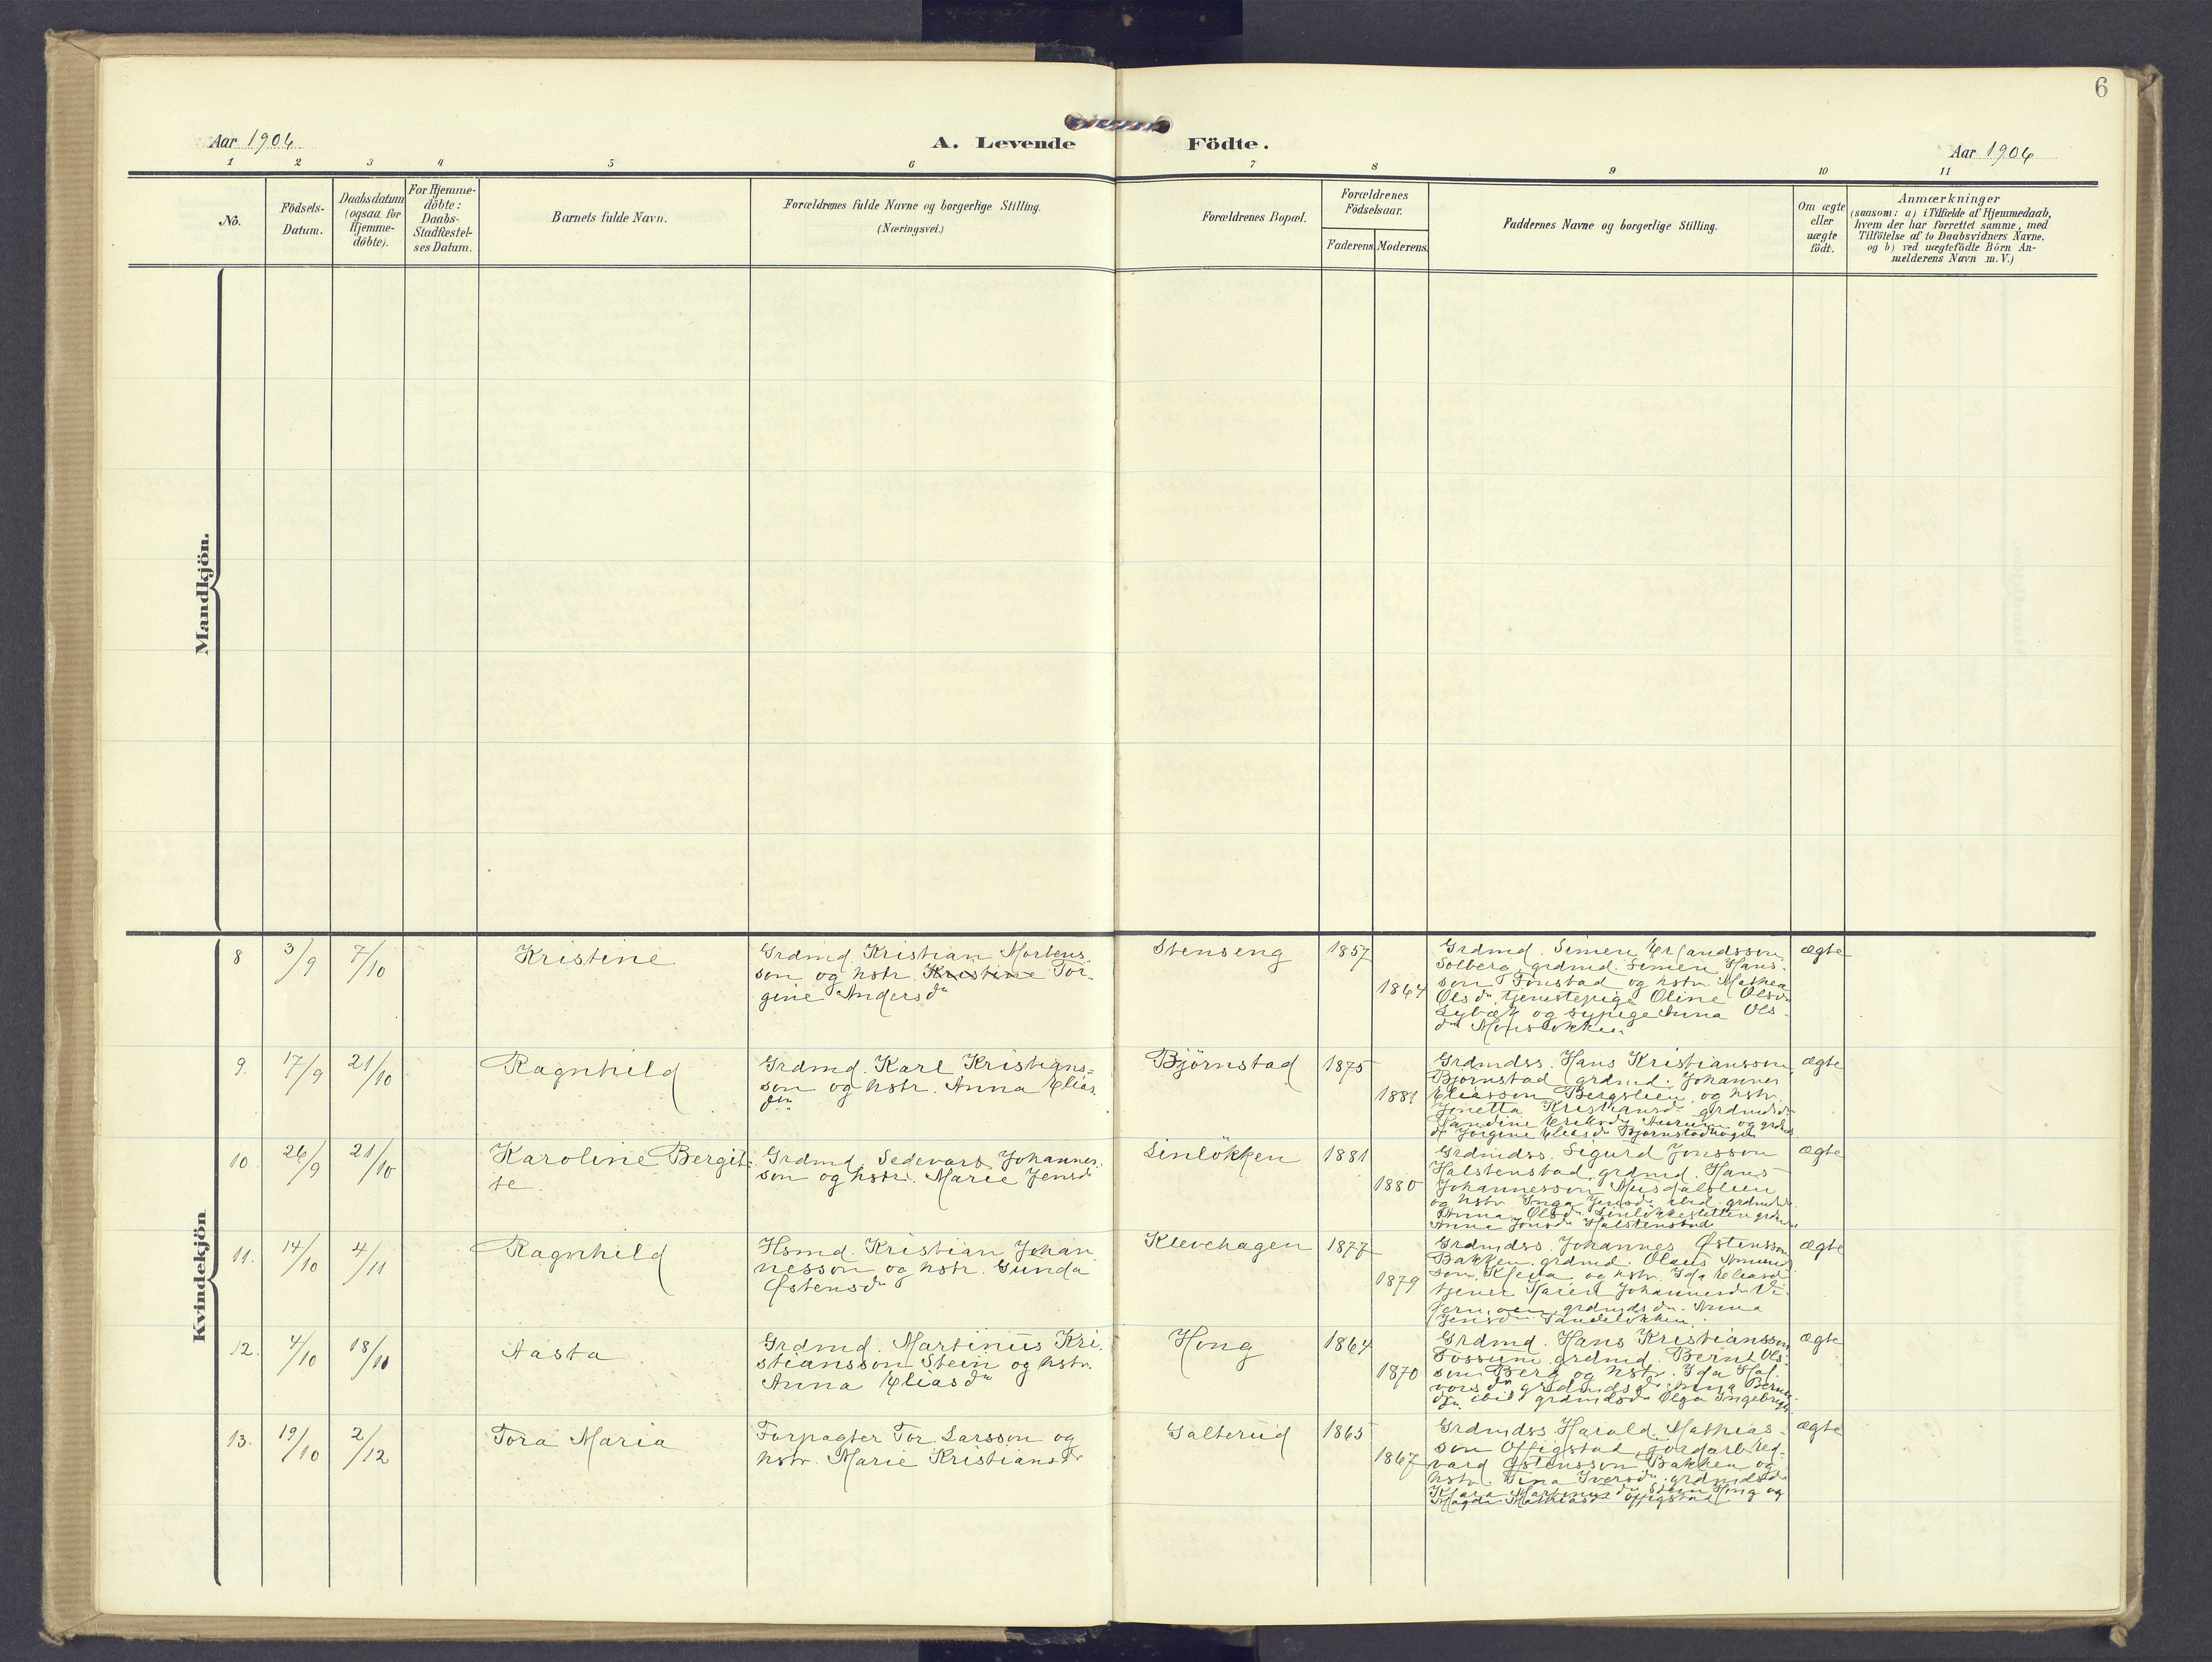 6
Aar 1906
A. Levende Födte.
Aar 1906
1 2 3 4 5 6 7 8 9 10 11
No.
Födsels-
Datum.
Daabsdatum
(ogsaa for
Hjemme-
döbte).
For Hjemme-
döbte:
Daabs-
Stadfæstel-
ses Datum.
Barnets fulde Navn.
Forældrenes fulde Navne og borgerlige Stilling.
(Næringsvei.)
Forældrenes Bopæl.
Forældrenes
Födselsaar.
Faderens. Moderens.
Faddernes Navne og borgerlige Stilling.
Om ægte
eller
uægte
födt.
Anmærkninger
(saasom: a) i Tilfælde af Hjemmedaab,
hvem der har forrettet samme, med
Tilföielse af to Daabsvidners Navne.
og b) ved uægtefödte Börn An-
melderens Navn m. V.)
Mandkjön.
Kvindekjön
8 3/9 7/10
Kristine
Grdmd. Kristian Mortens-
son og hstr. Kristine Tor-
gine Andersdr
Stenseng
1857
1864
Grdmd. Simen Erlandsson
Solberg, grdmd. Simen Hans-
son Fonstad og hstr. Mathea
Olsdr, tjenestepige Oline Olsdr
Lybæk og sypige Anna Ols-
dr
ægte
9. 17/9 21/10
Ragnhild
Grdmd. Karl Kristians-
son og hstr. Anna Elias
dtr
Björnstad
1875
1881
Grdmdss. Hans Kristiansson
Bjørnstad, grdmd. Johannes
Eliasson Bergslien og hstr.
Jonetta Kristiansdr grdmdsdr
og
Jörgine Eliasdr
ægte
10. 26/9 21/10
Karoline Bergit-
te
Grdmd. Sedevars Johannes-
son og hstr. Marie Jensdr
Linlökken
1881
1880
Grdmdss. Sigurd Jonsson
Halstenstad, grdmd. Hans
Johannesson
og hstr. Inga Jensdr ibid. grdmdsdr
Anna Olsdr
Anna Jonsdr Halstenstad
ægte
11. 14/10 4/11
Ragnhild
Hsmd. Kristian Johan
nesson og hstr. Gunda
Østensdr
Klevehagen
1877
1879
Grdmdss. Johannes Østensson
Bakken, grdmd. Olaus Amund
son Kleva og hstr. Ida Eliasdr
tjener Karen Johannesdr
grdmdsdr. Anna
Jensdr Sandelökken.
ægte
12. 4/10 18/11
Aasta
Grdmd. Martinus Kri-
stiansson Stein og hstr.
Anna Eliasdr
Hong
1864
1870
Grdmd. Hans Kristiansson
Fossum, grdmd. Bernt Ols-
son Berg og hstr. Ida Hal-
vorsdr grdmdsdr
ibid grdmdsdr Olga Ingebrigts
ægte
13. 19/10 2/12
Tora Maria
Forpagter Tor Larsson og
hstr. Marie Kristiansdr
Galterud
1865
1867
Grdmdss. Harald Mathias-
son Offigstad, jordarb. Ed-
vard Østensson Bakken og
hstr. Tina Iversdr. grdmdsdr
Klara Martinusdr Stein Hong og
Magda Mathiasdr Offigstad
ægte